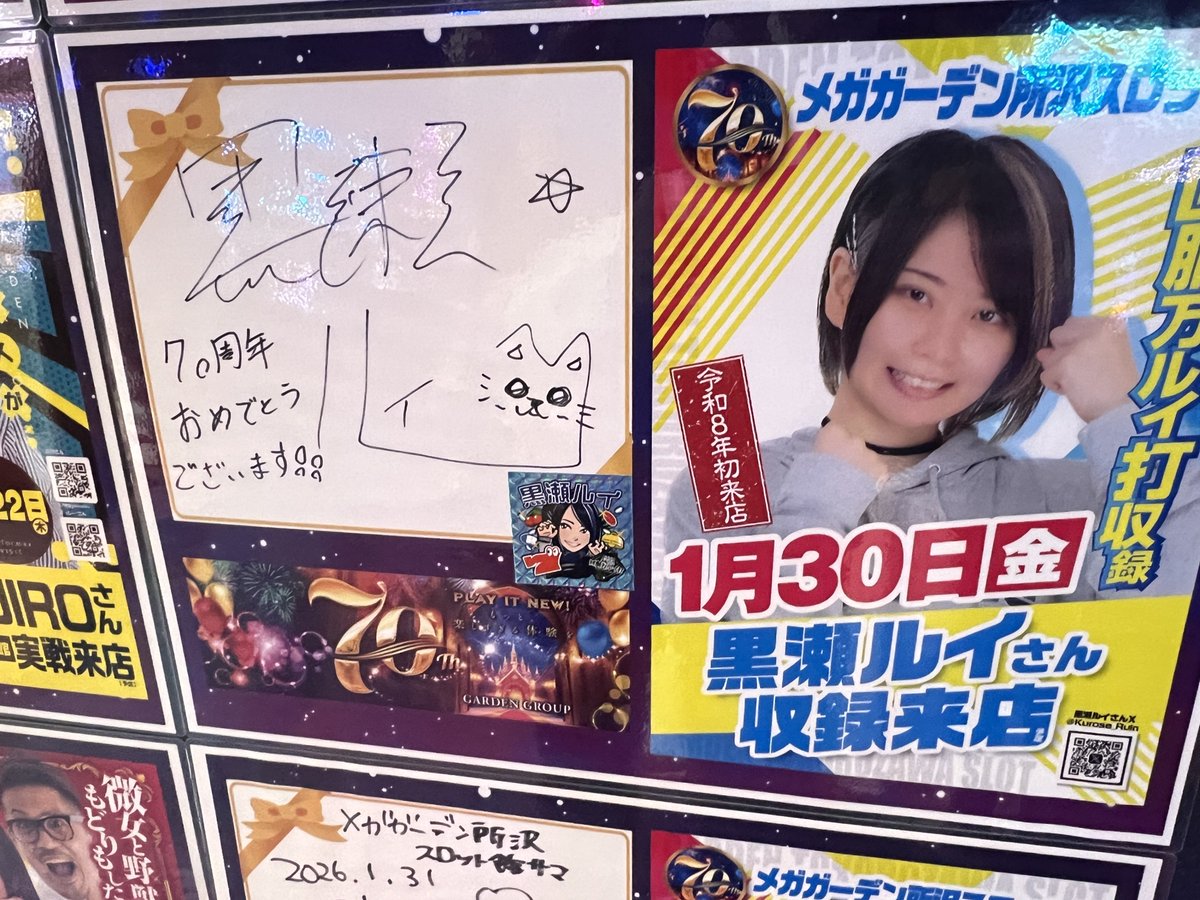 黒瀬
ルイ
70周年
おめでとう
ございます!!
黒瀬ルイ
70th
PLAY IT NEW!
GARDEN GROUP
70th
メガガーデン所沢スロッ
万ルイ打収録
令和8年初来店
1月30日金
黒瀬ルイさん
収録来店
黒瀬ルイさんX
@Kurose_Ruin
22日木
JIROさん
実戦来店
微女と野獣
もどりもした
メガガーデン所沢
スロット館サマ
2026.1.31
70
メガガーデン所沢スロッ